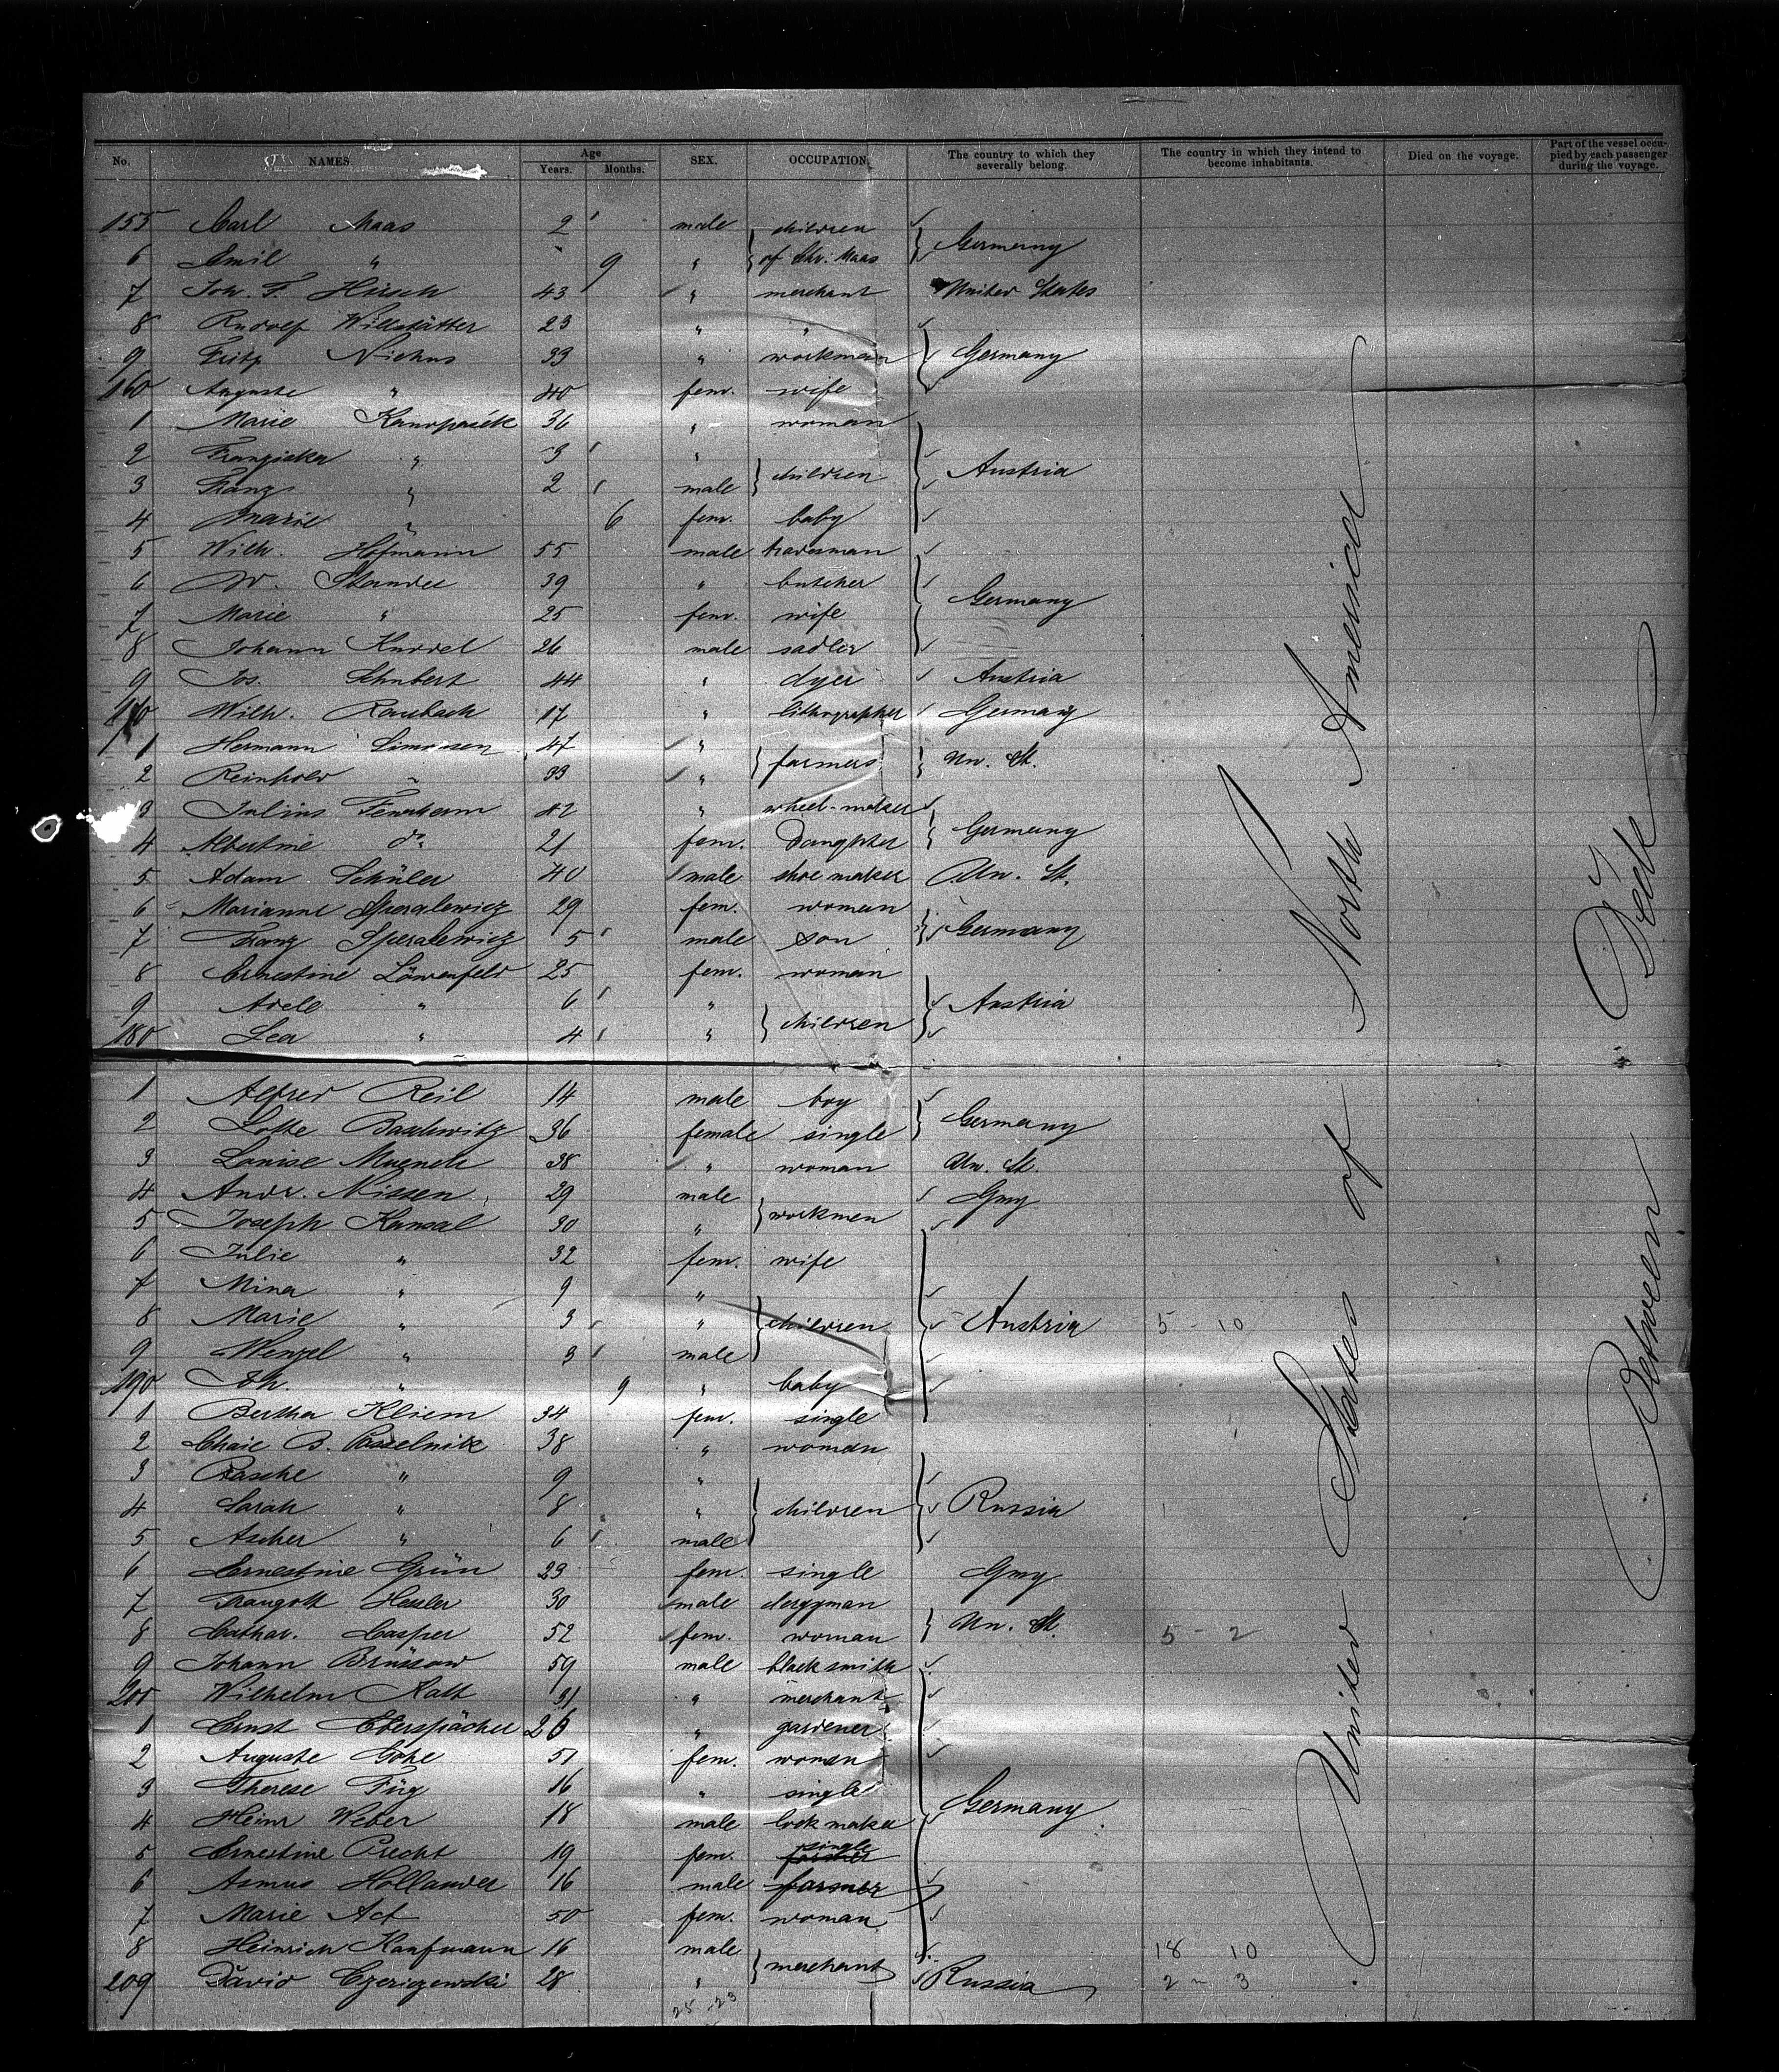 No. NAMES. Age Years. Months. SEX. OCCUPATION The country to which they severally belong. The country in which they intend to become inhabitants. Died on the voyage. Part of the vessel occupied by each passenger during the voyage.
155 Carl Maas 2 male children
6 Emil " 9 " of Chr. Maas Germany
7 Joh. F. Hirsch 43 " merchant United States
8 Rudolf Willstätter 23 " "
9 Fritz Niekus 33 " workman Germany
160 Auguste " 40 fem. wife
1 Marie 36 " woman
2 Franziska " 3 "
3 Franz " 2 male children Austria
4 Marie " 6 fem. baby
5 Wilh. Hofmann 55 male tradesman
6 W. Standee 39 " butcher
7 Marie " 25 fem. wife Germany
8 Johann Knodel 26 male sadler
9 Jos. Schubert 44 " dyer Austria
170 Wilh. Raubach 17 " lithographer Germany
1 Hermann Simonsen 47 "
2 Reinhold " 33 " farmers Un. St.
3 Julius 42 " wheel-maker
4 Albertine do 21 fem. Daughter Germany
5 Adam Schüler 40 male shoemaker Un. St.
6 Marianne Speralewicz 29 fem. woman
7 Franz Speralewicz 5 male son Germany
8 Ernestine Löwenfeld 25 fem. woman
9 Adele " 6 " Austria
180 Lea " 4 " children
1 Alfred Reil 14 male boy
2 Lotte Baschwitz 36 female single Germany
3 Louise Muench 38 " woman Un. St.
4 Andr. Nissen 29 male Gmy
5 Joseph Kansal 30 " workmen
6 Julie " 32 fem. wife
7 Mina " 9 "
8 Marie " 3 " children Austria 5 - 10
9 Wenzel " 3 male
190 Joh. " 9 " baby
1 Bertha Kliem 34 fem. single
2 Chaie B. Posselnik 38 " woman
3 Rasche " 9 "
4 Sarah " 8 " children Russia
5 Ascher " 6 male
6 Ernestine Grün 23 fem. single Gmy
7 Traugott Hessler 30 male clergyman
8 Cathar. Casper 52 fem. woman Un. St. 5 - 2
9 Johann Brüssow 59 male blacksmith
200 Wilhelm Kalt 31 " merchant
1 Ernst Eberspächer 26 " gardener
2 Auguste Gohe 51 fem. woman
3 Therese Füg 16 " single
4 Heinr Weber 18 male lockmaker Germany
5 Ernestine Precht 19 fem. single
6 Asmus Hollander 16 male farmer
7 Marie Act 50 fem. woman
8 Heinrich Kaufmann 16 male 18 10
209 David Czerizewski 28 " merchant Russia 2 - 3
25 - 23
United States of North America
Between Deck